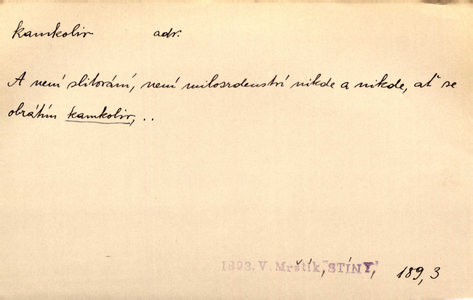 kamkoliv adv.
A není slitování, není milosrdenství nikde a nikde, ať se
obrátím kamkoliv, . .
1893, V. Mrštík "STÍNY", 189, 3